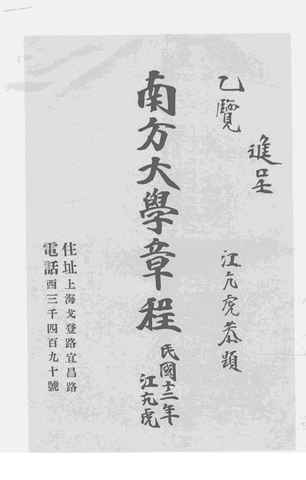 進呈
乙覽
江亢虎恭題
南方大學章程
民國十二年
江亢虎
住址上海戈登路宜昌路
電話西三千四百九十號